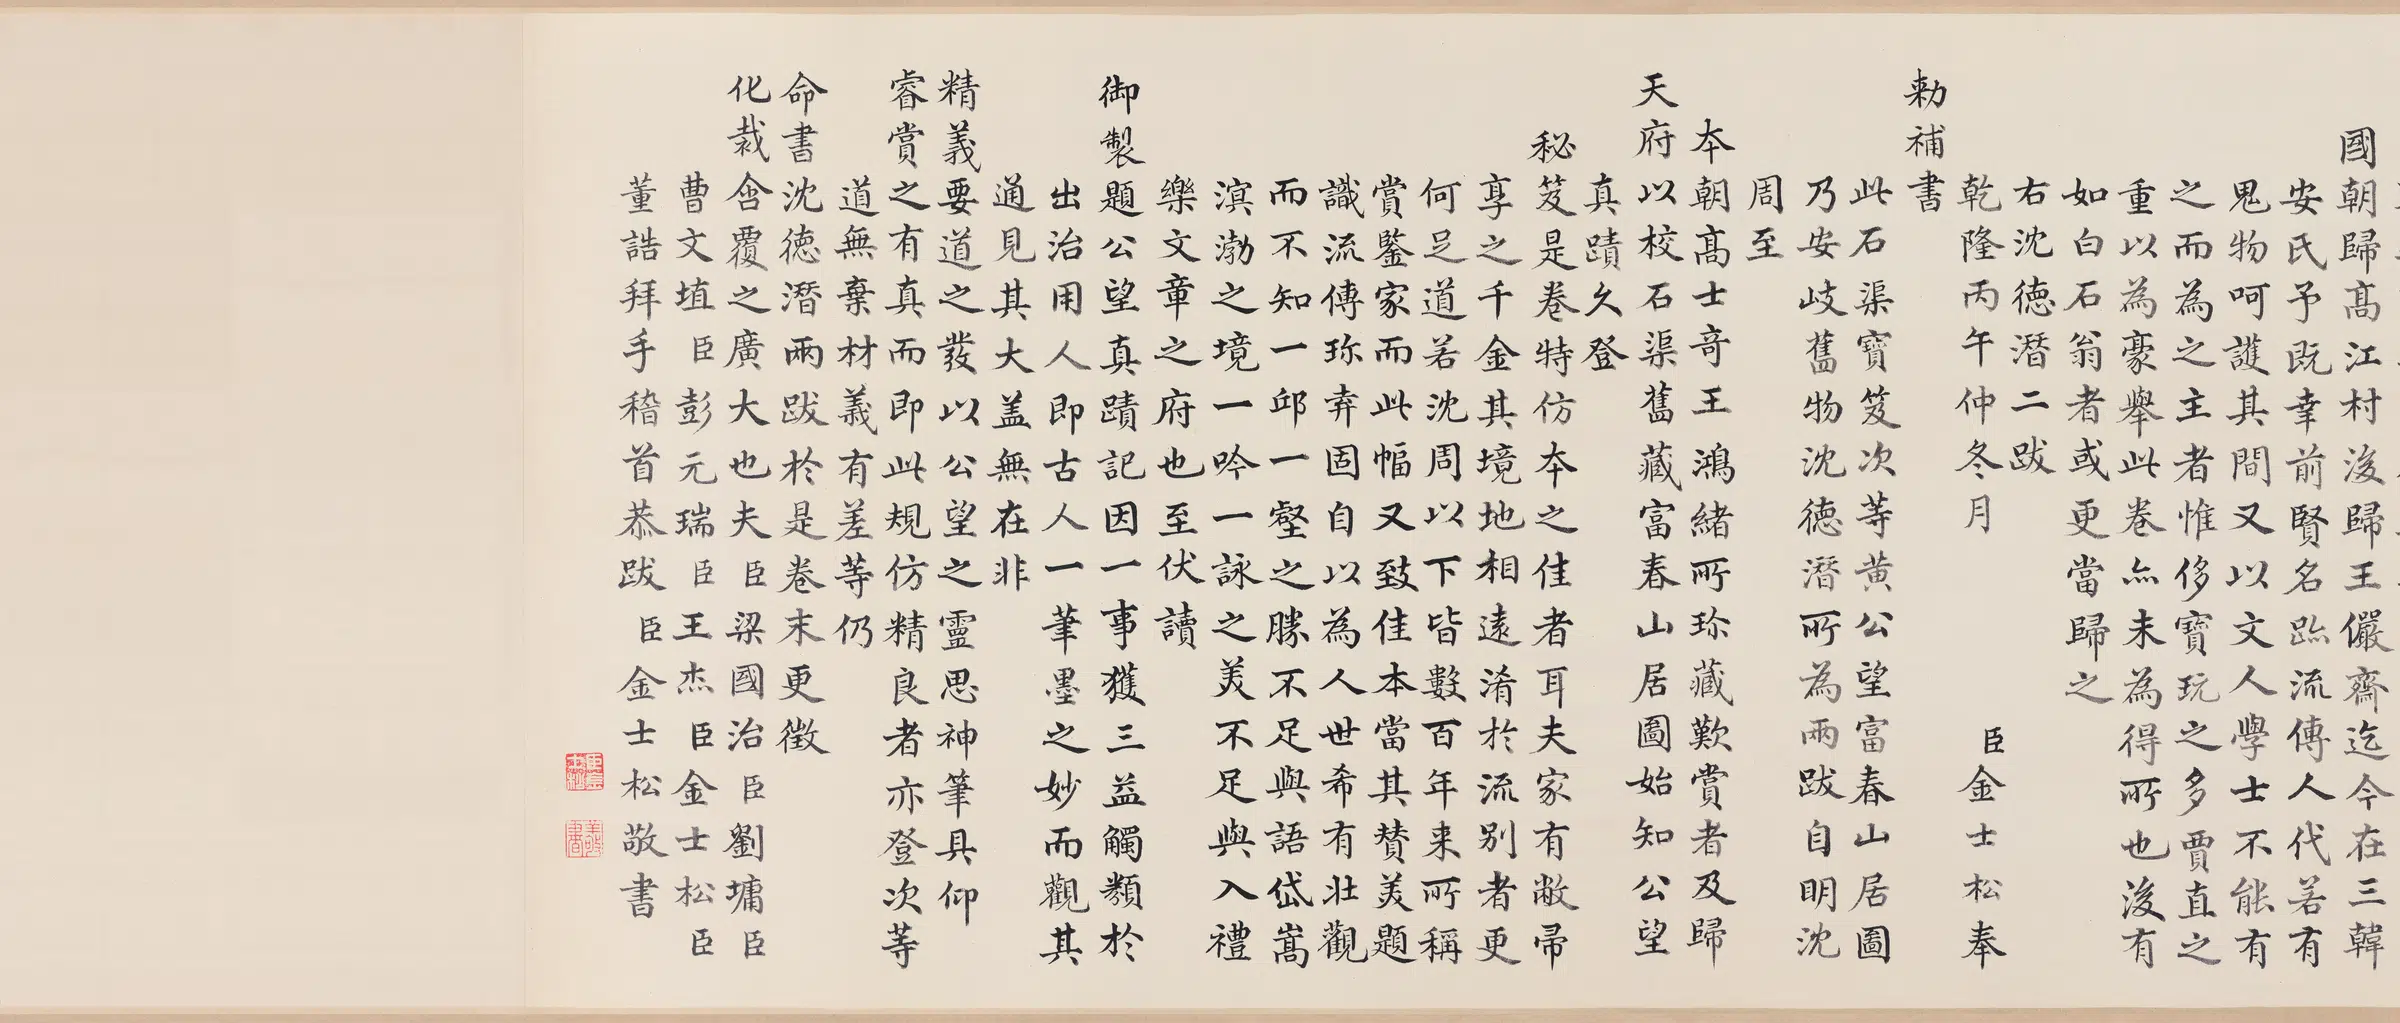 國朝歸髙江村後歸王儼齋迄今在三韓
安氏予既幸前賢名跡流傳人代若有
鬼物呵護其間又以文人學士不能有
之而為之主者惟侈寶玩之多賈直之
重以為豪舉此卷亦未為得所也後有
如白石翁者或更當歸之
右沈德潛二跋
乾隆丙午仲冬月 臣金士松奉
勅補書
此石渠寶笈次等黄公望富春山居圖
乃安岐舊物沈德潛所為兩跋自明沈
周至
本朝髙士竒王鴻緒所珍藏歎賞者及歸
天府以校石渠舊藏富春山居圖始知公望
真蹟久登
秘笈是卷特仿本之佳者耳夫家有敝帚
享之千金其境地相逺淆於流别者更
何足道若沈周以下皆數百年来所稱
賞鑒家而此幅又致佳本當其賛美題
識流傳珍弆固自以為人世希有壯觀
而不知一邱一壑之勝不足與語岱嵩
溟渤之境一吟一詠之美不足與入禮
樂文章之府也至伏讀
御製題公望真蹟記因一事獲三益觸類於
出治用人即古人一筆墨之妙而觀其
通見其大盖無在非
精義要道之發以公望之靈思神筆具仰
睿賞之有真而即此規仿精良者亦登次等
道無棄材義有差等仍
命書沈德潛兩跋於是卷末更徴
化裁含覆之廣大也夫臣梁國治臣劉墉臣
曹文埴臣彭元瑞臣王杰臣金士松臣
董誥拜手稽首恭跋 臣金士松敬書